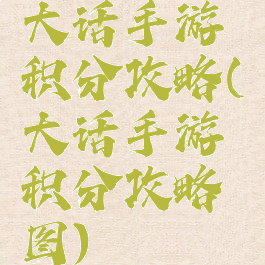 大话手游
积分攻略(
大话手游
积分攻略
图)